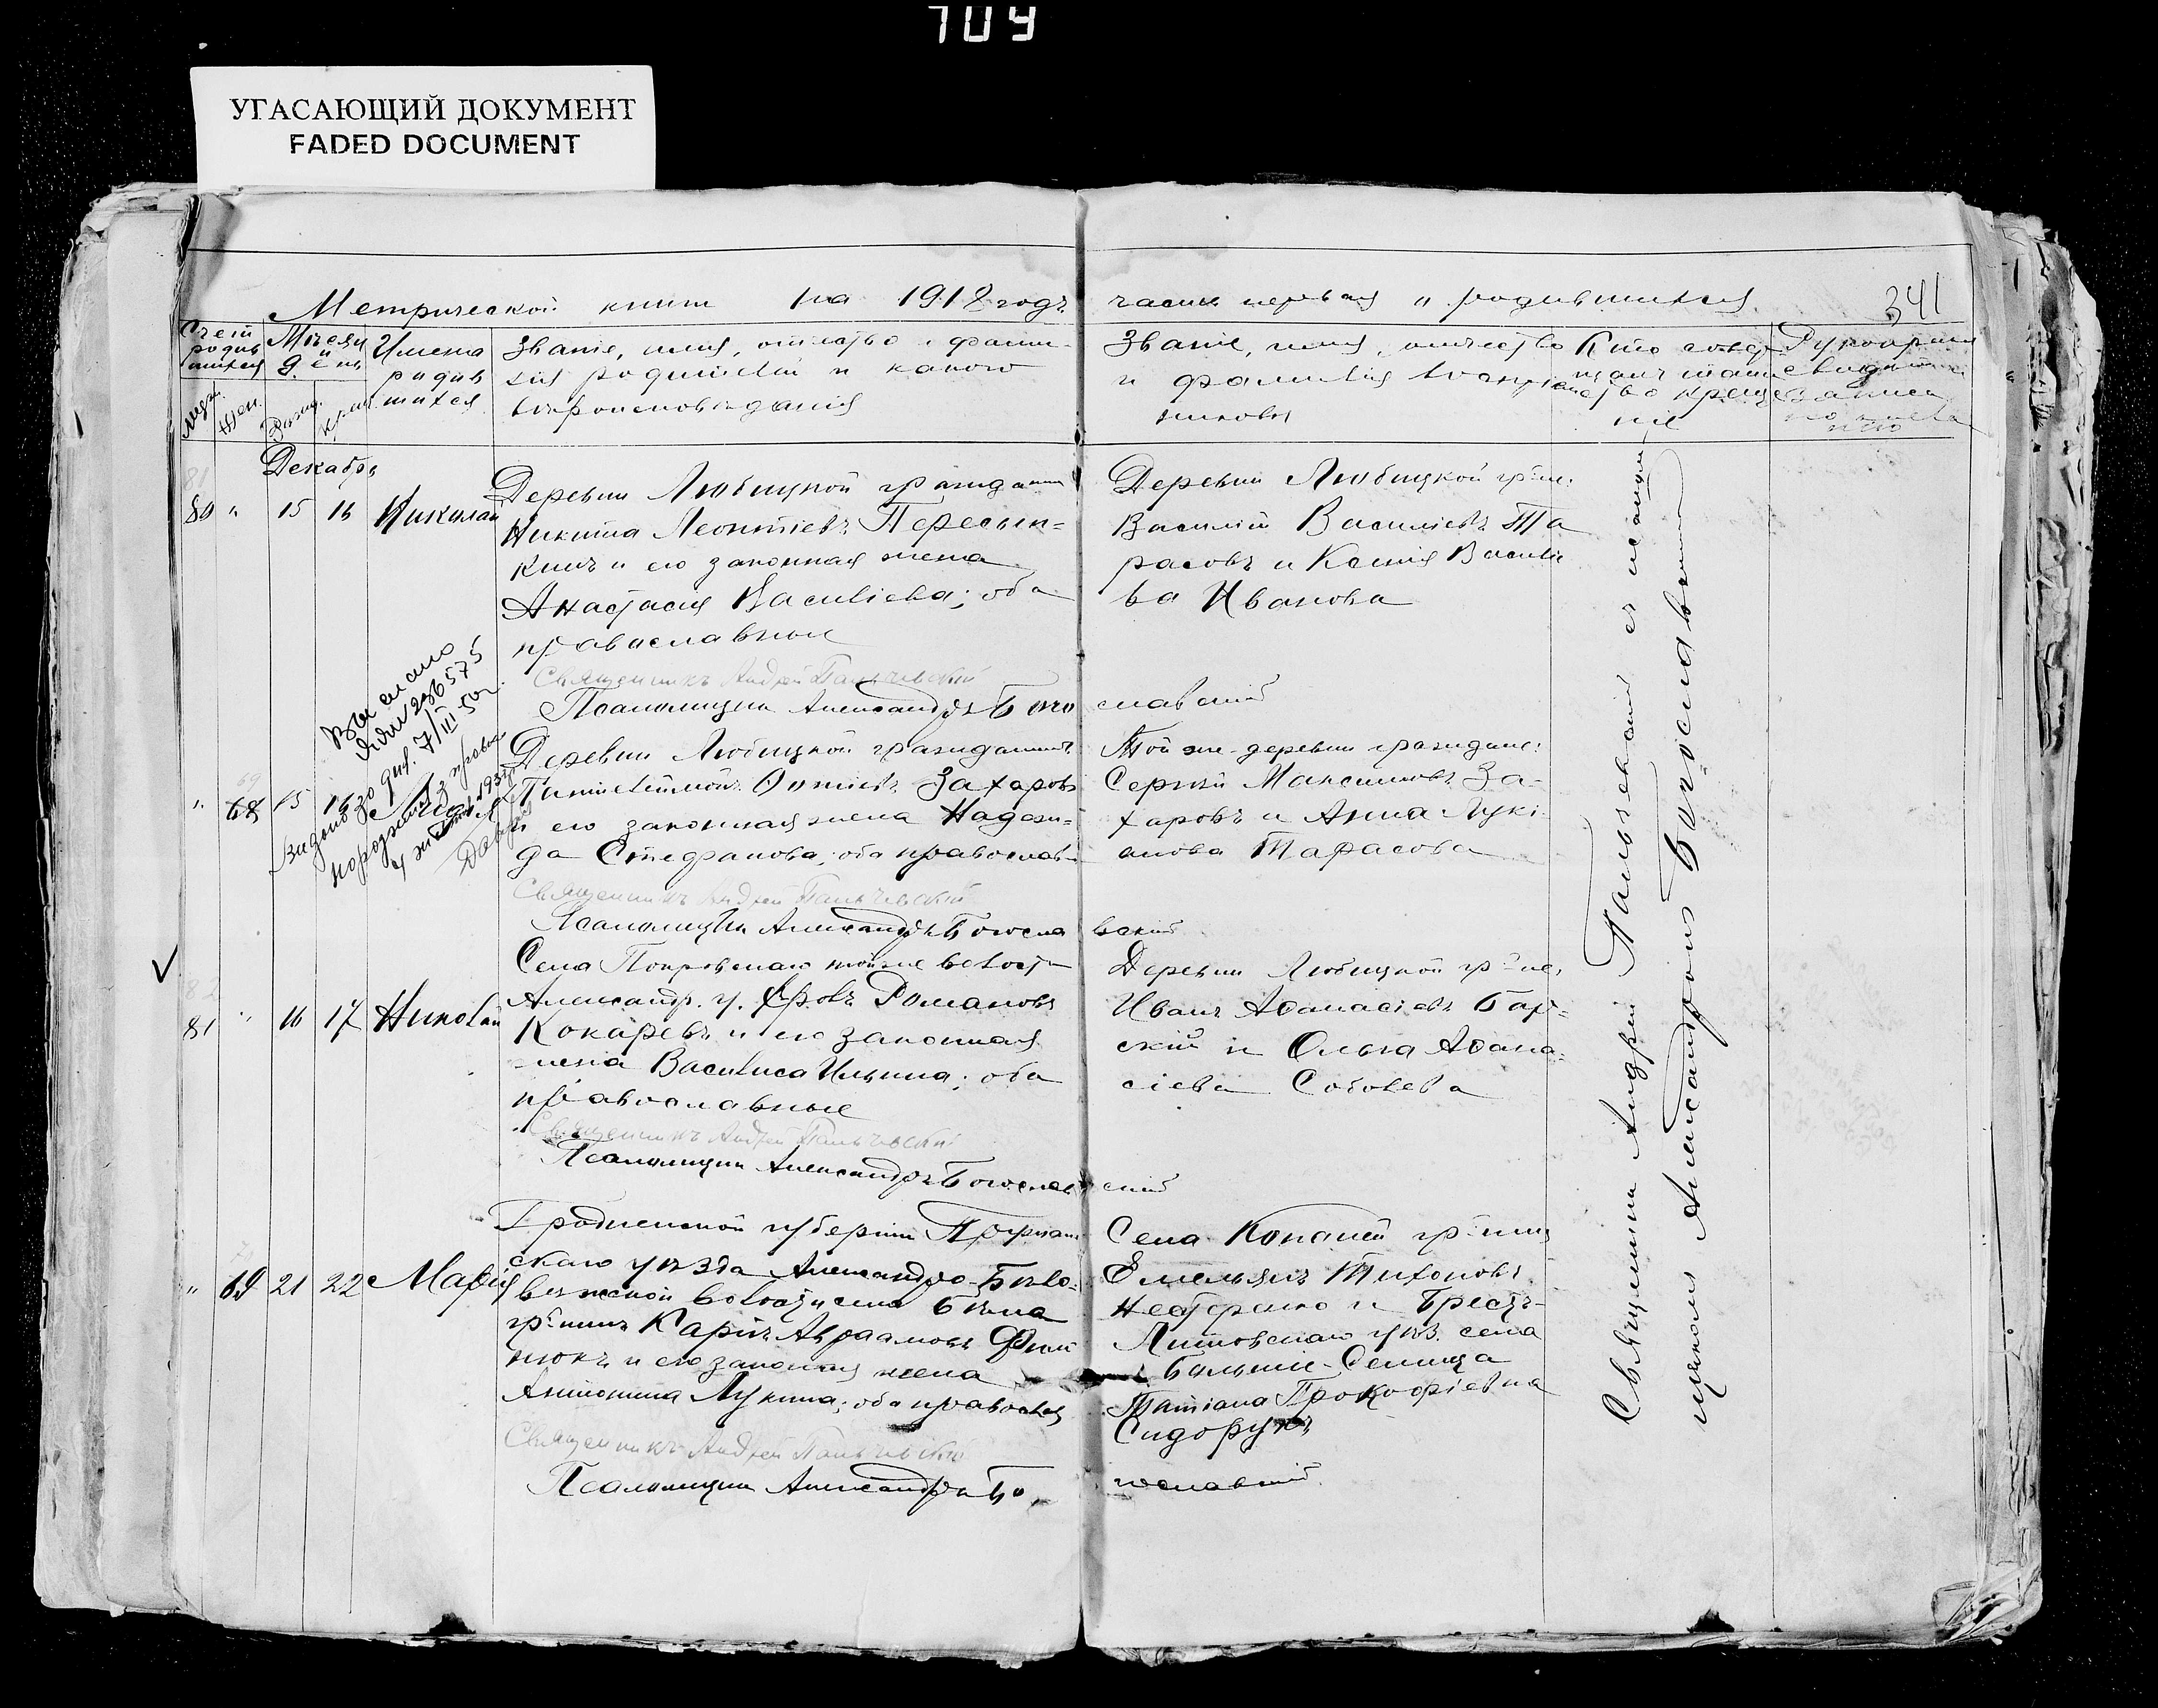 709
УГАСАЮЩИЙ ДОКУМЕНТ
FADED DOCUMENT
Метрической книги на 1918 годъ
часть первая о родившихся.
341
Счетъ родившихся
Муж.
Жен.
Мѣсяцъ и день
Рожд.
Крещ.
Имена родившихся
Званіе, имя, отчество и фами-
лія родителей и какого
вѣроисповѣданія
Званіе, имя, отчество
и фамилія воспріем
никовъ
Кто совер
шалъ таин
ство креще
ніе
Рукоприк
свидѣт
записи
по
Декабрь
80 " 15 16 Николай
Деревни Любицкой гражданинъ
Никита Леонтіевъ Пересып-
кинъ и его законная жена
Анастасія Василіева; оба
православные
Священникъ Андрей Пальчевскій
Псаломщикъ Александръ Бого
Деревни Любицкой гр-не.
Василій Василіевъ Та
расовъ и Ксенія Василіе
ва Иванова
славскій
Выслано
7/III 50 г.
69
" 68 15 16
Деревни Любицкой гражданинъ
Захаровъ
и его законная жена Надеж-
да Стефанова; оба православ-
Священникъ Андрей Пальчевскій
Псаломщикъ Александръ Богосла
Той же деревни граждане:
Сергій Максимовъ За-
харовъ и Анна Лукі
анова Тарасова
вскій
81 " 16 17 Николай
Села Покровскаго той же волости
Александр. у. Романовъ
Кокаревъ и его законная
жена Василиса Ильина; оба
православные
Священникъ Андрей Пальчевскій
Псаломщикъ Александръ Богослав
Деревни Любицкой гр-не,
Иванъ Аѳанасіевъ Бар-
скій и Ольга Аѳана-
сіева Соболева
скій
" 69 21 22 Марія
Гродненской губерніи Пружан
скаго уѣзда Александро-Бѣло-
вежской волости села Бѣла
гр-нинъ Карпъ Авраамовъ
и его законная жена
Антонина Лукина; оба православ
Священникъ Андрей Пальчевскій
Псаломщикъ Александръ Бо
Села Копаней гр-нинъ
Емельянъ Тихоновъ
Нестеренко и Брестъ-
Литовскаго уѣз. села
Большіе-Селища
Татіана Прокофіевна
Сидорукъ
гославскій.
Священникъ Андрей Пальчевскій съ псалом
щикомъ Александромъ Богославскимъ